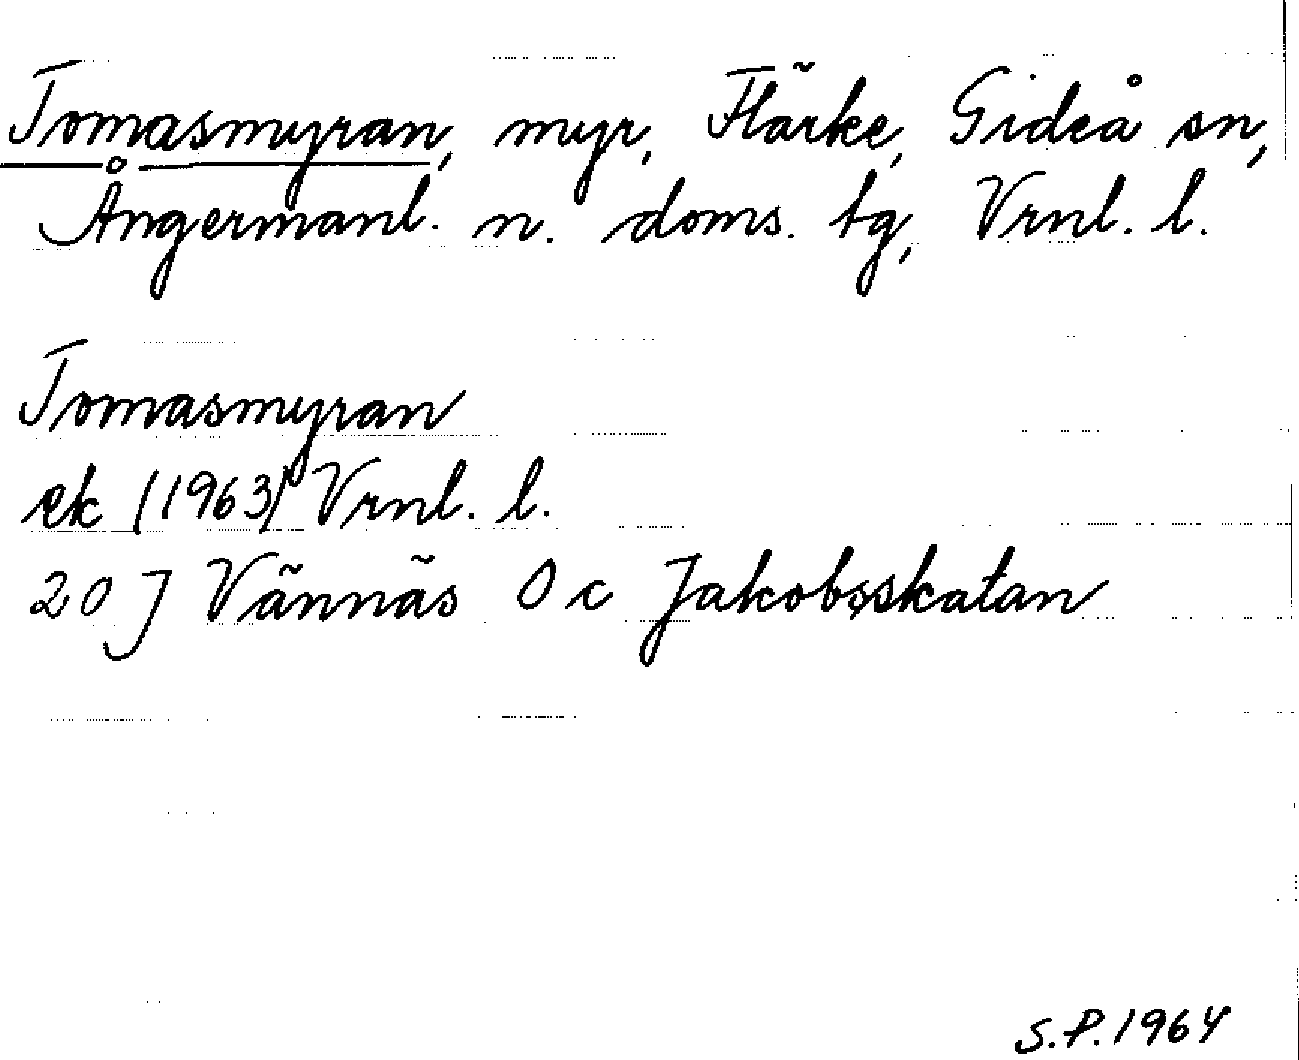 Tomasmyran, myr, Flärke, Gideå sn,
Ångermanl. n. doms. tg, Vrnl. l.
Tomasmyran
ek (1963) Vrnl. l.
20 J Vännäs 0 c Jakobsskatan
S.P. 1964